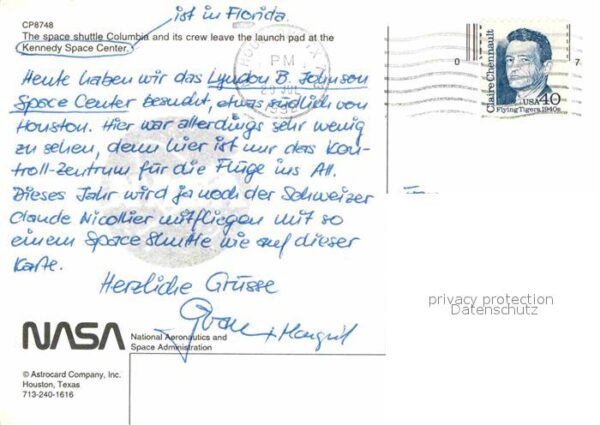 ist in Florida.
CP8748
The space shuttle Columbia and its crew leave the launch pad at the
Kennedy Space Center.
HOUSTON, TX
PM
Claire Chennault
USA 40
Flying Tigers, 1940s
Heute haben wir das Lyndon B. Johnson
Space Center besucht, etwas südlich von
Houston. Hier war allerdings sehr wenig
zu sehen, denn hier ist nur das Kon-
troll-Zentrum für die Flüge ins All.
Dieses Jahr wird ja noch der Schweizer
Claude Nicollier mitfliegen mit so
einem Space Shuttle wie auf dieser
Karte.
Herzliche Grüsse
+ Margrit
privacy protection
Datenschutz
NASA
National Aeronautics and
Space Administration
© Astrocard Company, Inc.
Houston, Texas
713-240-1616